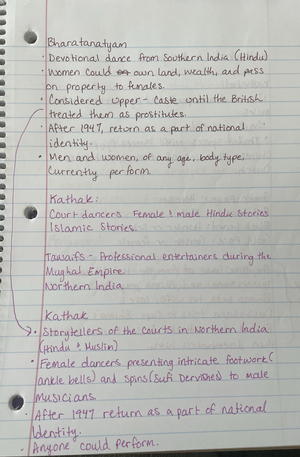 Bharatanatyam
• Devotional dance from Southern India (Hindu)
• Women could own land, wealth, and pass
on property to females.
• Considered upper-caste until the British
treated them as prostitutes.
• After 1947, return as a part of national
identity.
• Men and women, of any age, body type,
currently perform.
Kathak:
Court dancers Female & male Hindu Stories
Islamic Stories.
Tawaifs - Professional entertainers during the
Mughal Empire
Northern India
Kathak
• Storytellers of the courts in Northern India
(Hindu & Muslin)
• Female dancers presenting intricate footwork (
ankle bells) and spins (Sufi Dervishes) to male
musicians.
• After 1947 return as a part of national
Identity.
• Anyone could perform.